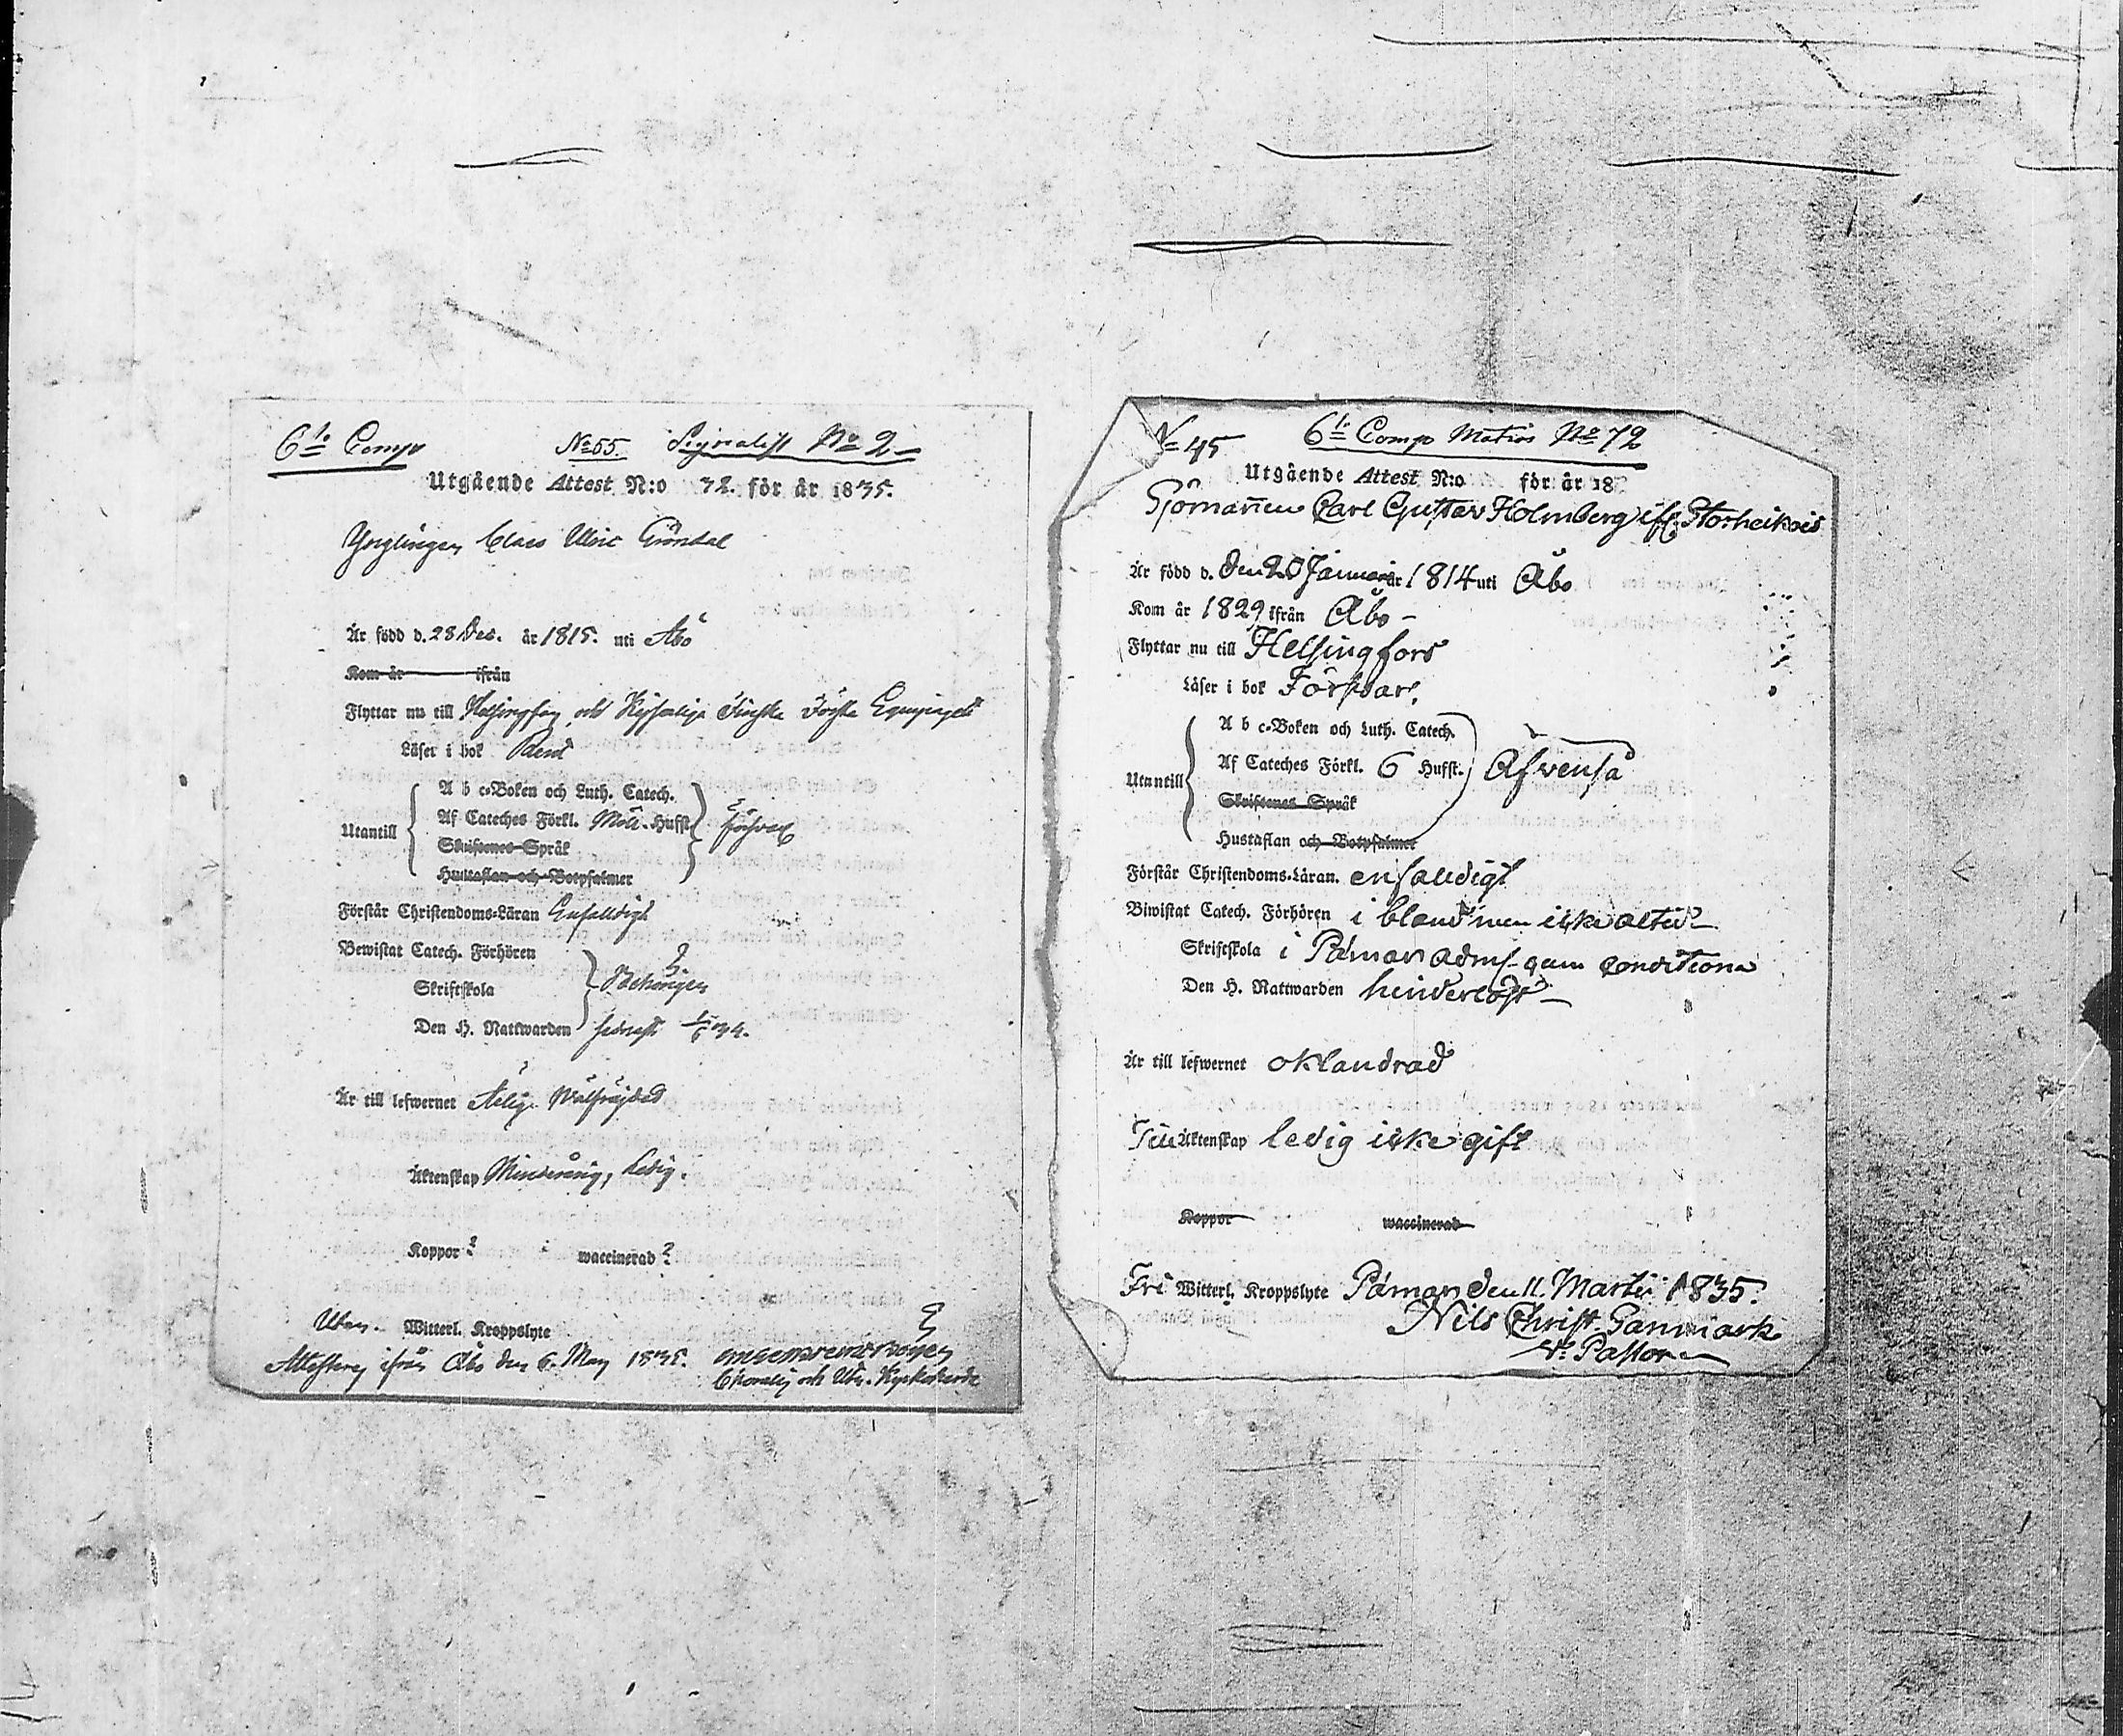 6te Comp No 55. Signalist No 2
Utgående Attest N:o 32. för år 1835.
Ynglingen Claes Ulric Gröndal
Är född d. 28 Dec. år 1815. uti Åbo
Kom år ifrån
Flyttar nu till Helsingfors och Kejserliga Finska Första Equipaget
Läser i bok Rent
A b c-Boken och Luth. Catech.
Utantill Af Cateches Förkl. Möll. Hufst. försvarl.
Skriftenes Språk
Hustaflan och Botpsalmer
Förstår Christendoms-Läran Enfalldigt
Bewistat Catech. Förhören
Skriftskola Behörigen
Den H. Nattwarden sednast 1/6 34.
Är till lefwernet ärlig. Wälfräjdad
Äktenskap Minderårig, Ledig.
Koppor ? waccinerad ?
Utan. Witterl. Kroppslyte
Attesteras ifrån Åbo den 6. May 1835.
och Vice Kyrkoherde
No 45 6te Comp Matros No 72
Utgående Attest N:o för år 18
Sjömannen Carl Gustav Holmberg ifr. Storheikois
Är född d. den 20 Januari år 1814 uti Åbo
Kom år 1829 ifrån Åbo
Flyttar nu till Helsingfors
Läser i bok Försvarl.
A b c-Boken och Luth. Catech.
Utantill Af Cateches Förkl. 6 Hufst. Äfvenså
Skriftenes Språk
Hustaflan och Botpsalmer
Förstår Christendoms-Läran. enfaldigt
Biwistat Catech. Förhören i bland men icke altid
Skriftskola i Pämar adms. cum conditione
Den H. Nattwarden hinderlöst
Är till lefwernet oklandrad
Till Äktenskap ledig icke gift
Koppor waccinerad
Fri Witterl. Kroppslyte Pämar den 11. Martii 1835.
Nils Christ. Ganmark
V. Pastor